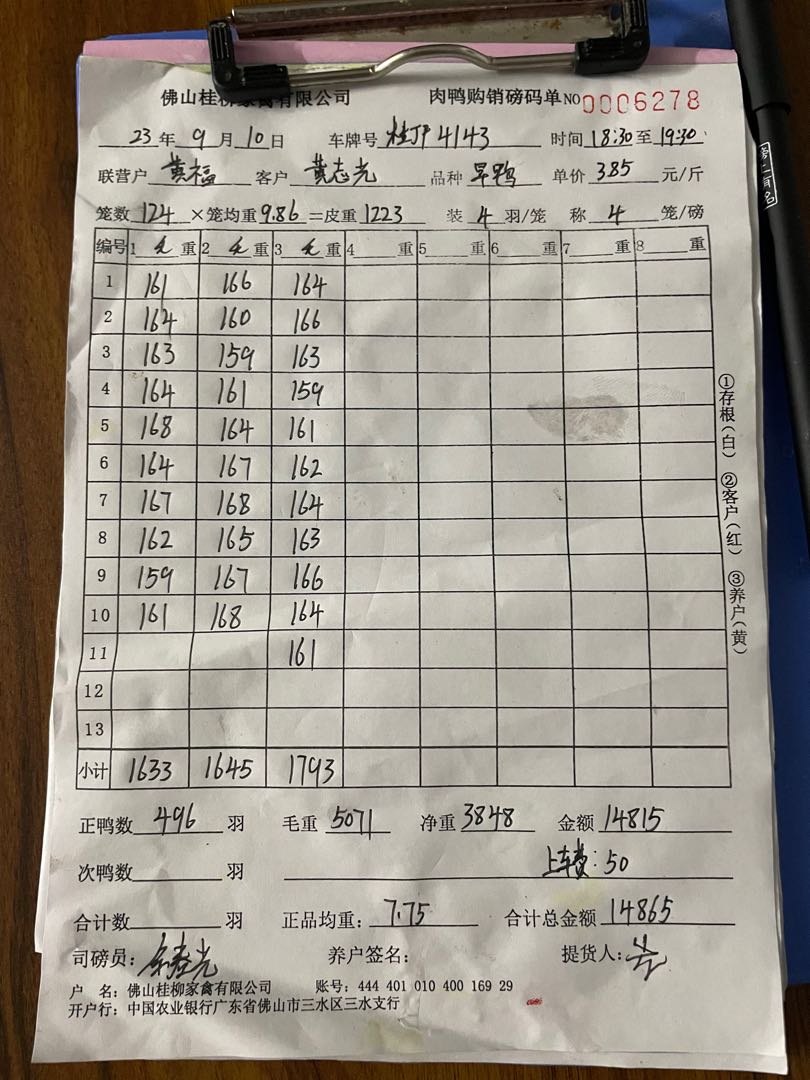 佛山桂柳家禽有限公司 肉鸭购销磅码单 NO 0006278
23年 9 月 10 日 车牌号 桂JP4143 时间 18:30 至 19:30
联营户 黄福 客户 黄志光 品种 旱鸭 单价 3.85 元/斤
笼数 124 ×笼均重 9.86 =皮重 1223 装 4 羽/笼 称 4 笼/磅
编号 1 毛 重 2 毛 重 3 毛 重 4 重 5 重 6 重 7 重 8 重
1 161 166 164
2 164 160 166
3 163 159 163
4 164 161 159
5 168 164 161
6 164 167 162
7 167 168 164
8 162 165 163
9 159 167 166
10 161 168 164
11 161
12
13
小计 1633 1645 1793
正鸭数 496 羽 毛重 5071 净重 3848 金额 14815
次鸭数 羽 上车费:50
合计数 羽 正品均重: 7.75 合计总金额 14865
司磅员: 养户签名: 提货人:
户 名: 佛山桂柳家禽有限公司 账号: 444 401 010 400 169 29
开户行: 中国农业银行广东省佛山市三水区三水支行
①存根(白) ②客户(红) ③养户(黄)